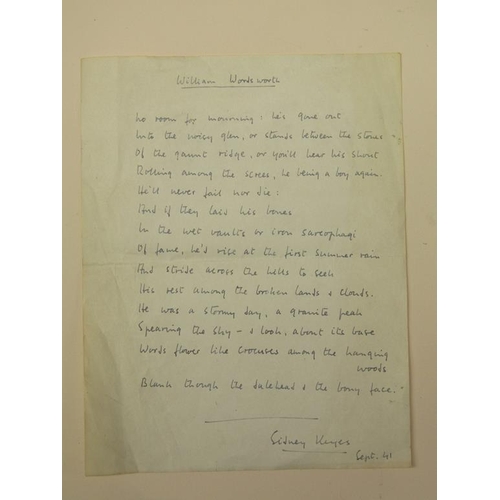 William Wordsworth
No room for mourning: he's gone out
Into the noisy glen, or stands between the stones
Of the gaunt ridge, or you'll hear his shout
Rolling among the screes, he being a boy again.
He'll never fail nor die:
And if they laid his bones
In the wet vaults or iron sarcophagi
Of fame, he'd rise at the first summer rain
And stride across the hills to seek
His rest among the broken lands & clouds.
He was a stormy day, a granite peak
Spearing the sky - & look, about its base
Words flower like crocuses among the hanging
woods
Blank though the dalehead & the bony face.
Sidney Keyes
Sept. 41